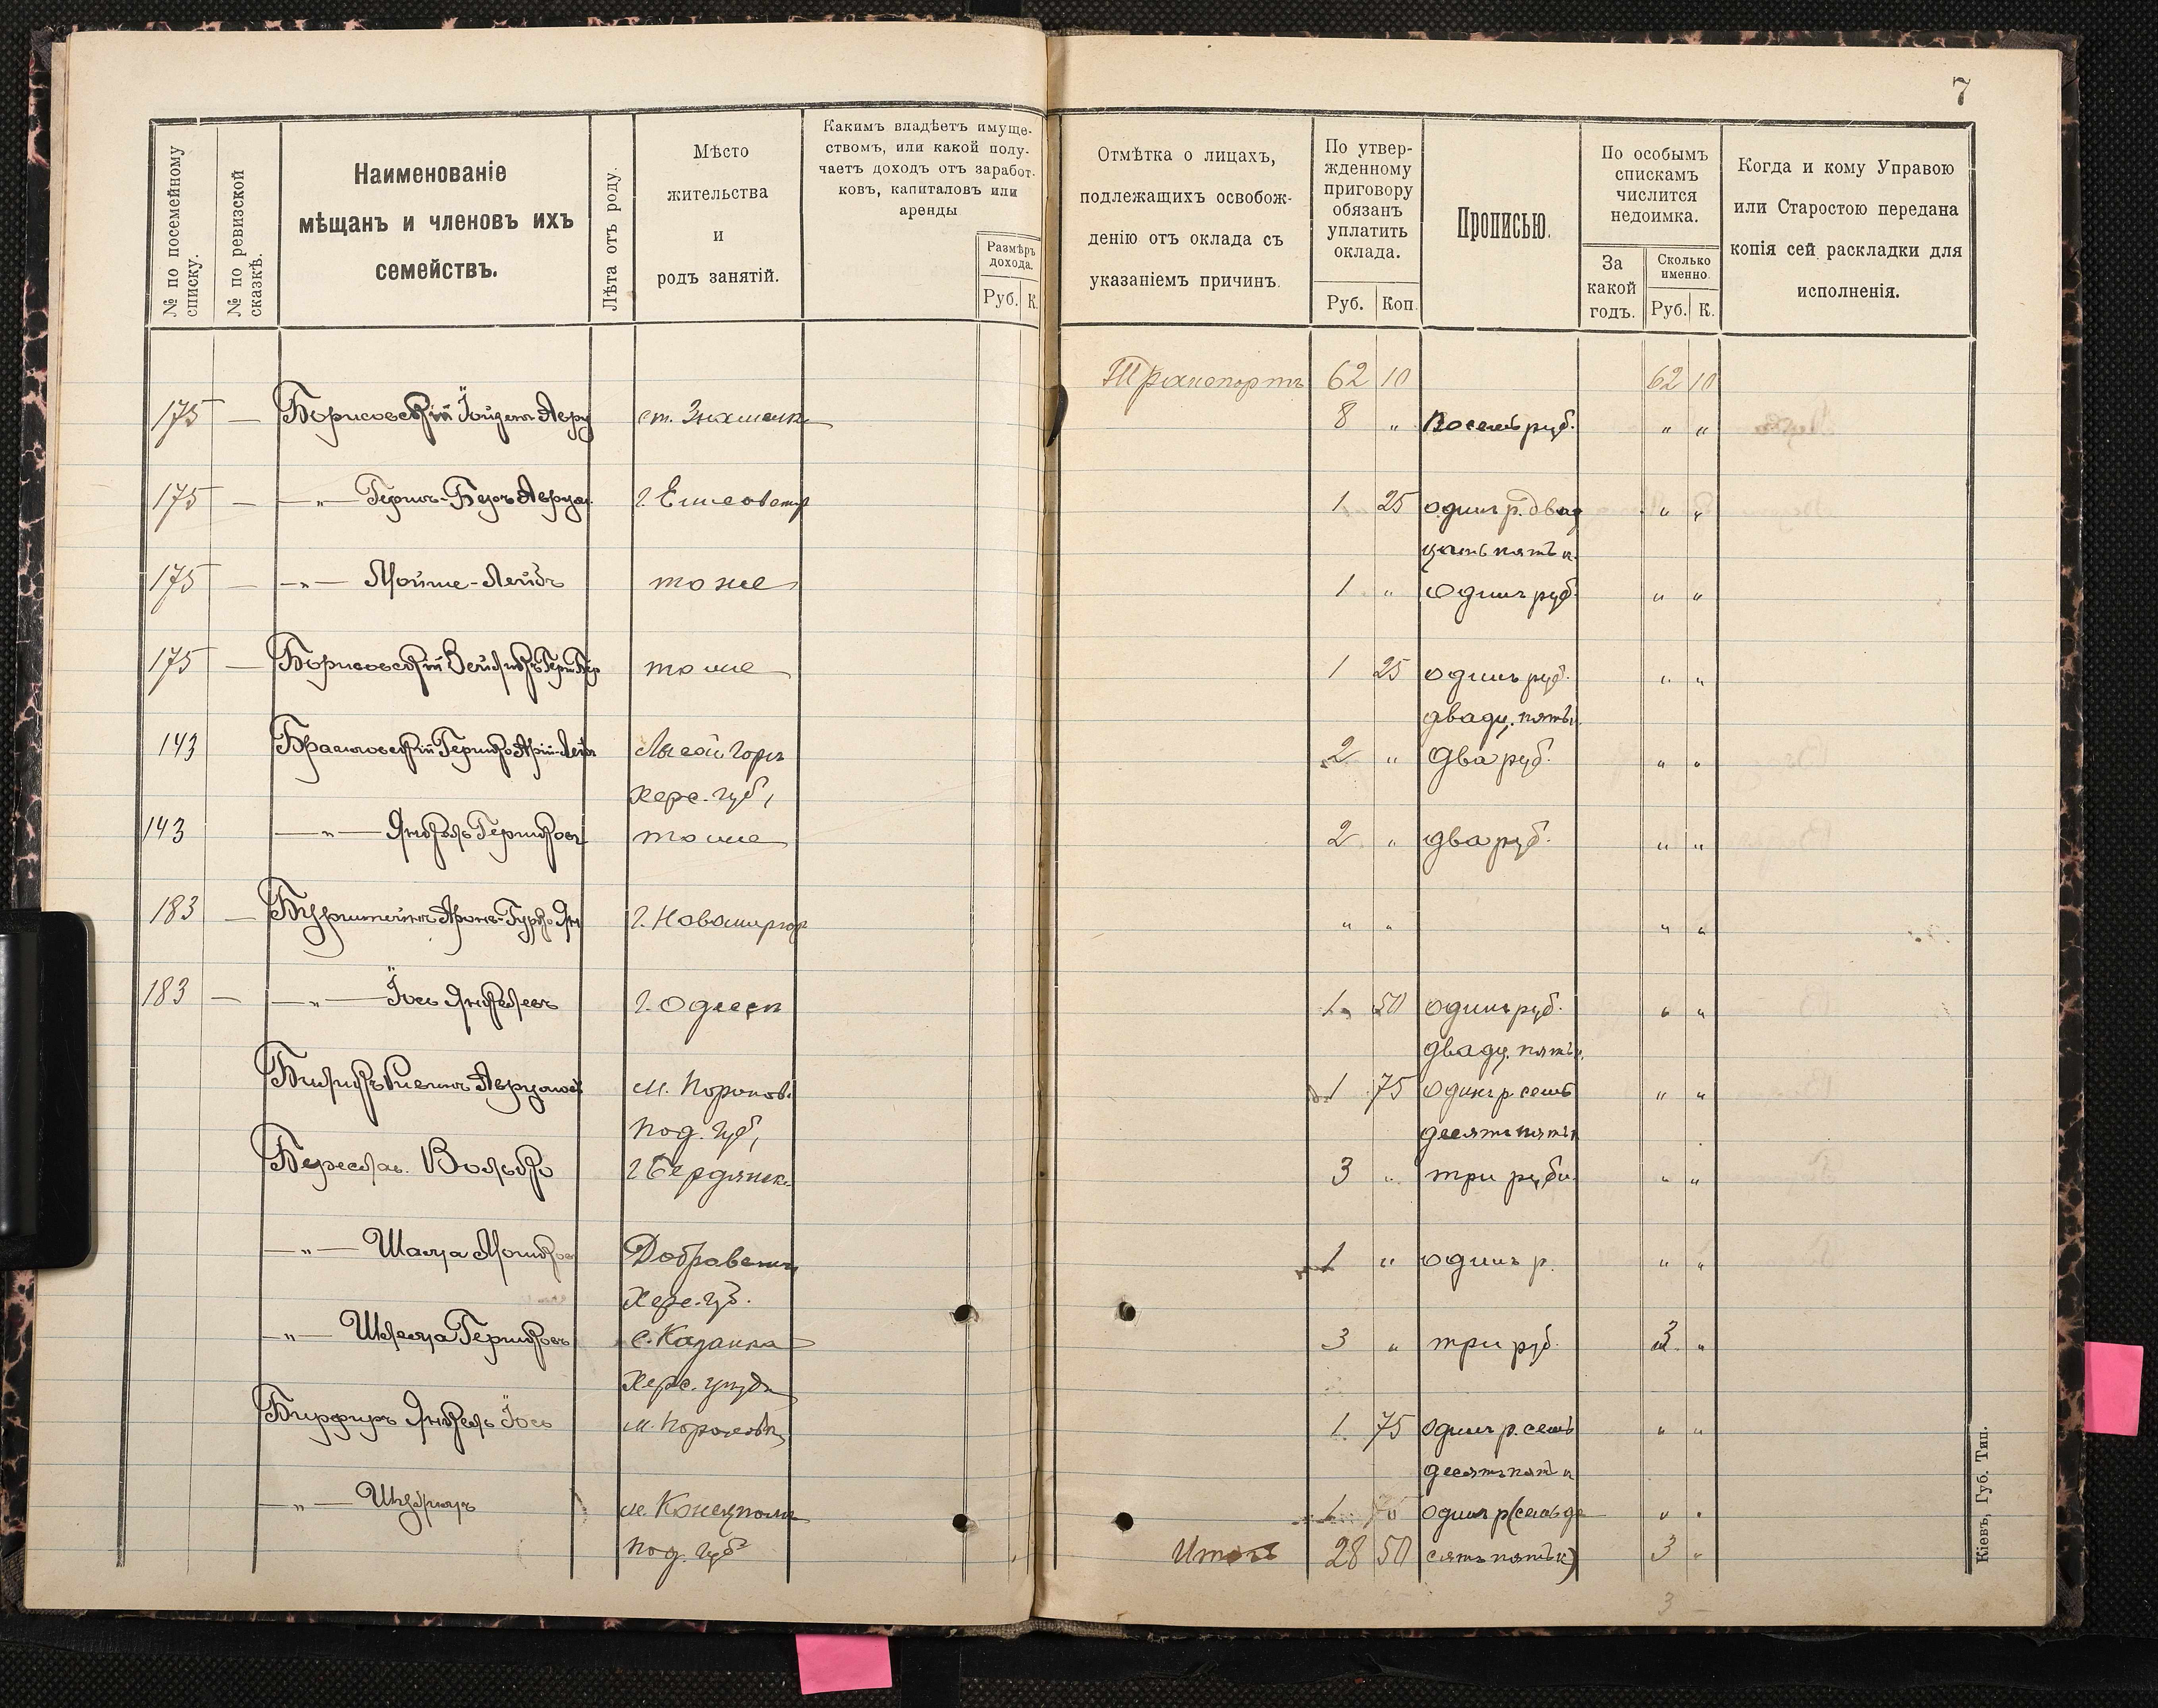 7
№ по посемейному списку.
№ по ревизской сказкѣ.
Наименованіе
мѣщанъ и членовъ ихъ
семействъ.
Лѣта отъ роду.
Мѣсто
жительства
и
родъ занятій.
Какимъ владѣетъ имуще-
ствомъ, или какой полу-
чаетъ доходъ отъ заработ-
ковъ, капиталовъ или
аренды
Размѣръ
дохода.
Руб. К.
Отмѣтка о лицахъ,
подлежащихъ освобож-
денію отъ оклада съ
указаніемъ причинъ.
По утвер-
жденному
приговору
обязанъ
уплатить
оклада.
Руб. Коп.
Прописью.
По особымъ
спискамъ
числится
недоимка.
За
какой
годъ.
Сколько
именно.
Руб. К.
Когда и кому Управою
или Старостою передана
копія сей раскладки для
исполненія.
Транспортъ 62 10 62 10
175 — Борисовскій Авру ст. Знаменка 8 " Восемь руб. " "
175 — — " — Герш-Беръ Аврум. г. Елисаветгр 1 25 один р. двад " "
цать пять к.
175 — — " — Мойше-Лейбъ тоже 1 " Один руб. " "
175 — Борисовскій тоже 1 25 один руб. " "
двадц. пять к.
143 Гершко Лысой Горы 2 " два руб. " "
Херс. губ.
143 — " — Янкель Гершковъ тоже 2 " два руб. " "
183 — Бурштейнъ Аронъ- г. Новомиргор " " " "
183 — — " — Іось Янкелевъ г. Одесса 1 50 один руб. " "
двадц. пять к.
Аврумовъ м. 1 75 Один р. семь " "
Под. губ. десять пять к
Береслав. Волько г. Бердянск 3 " три рубл. " "
— " — Шая Мошков 1 " один р. " "
Херс. губ.
— " — Гершковъ с. Казанка 3 " три руб. 3 "
Херс.
Янкель Іось м. 1 75 Один р. семь " "
десять пять к
— " — м. Конецполь 1 один р (семь де " "
Под. губ Итого 28 50 сять пять к) 3 "
3 —
Кіевъ, Губ. Тип.